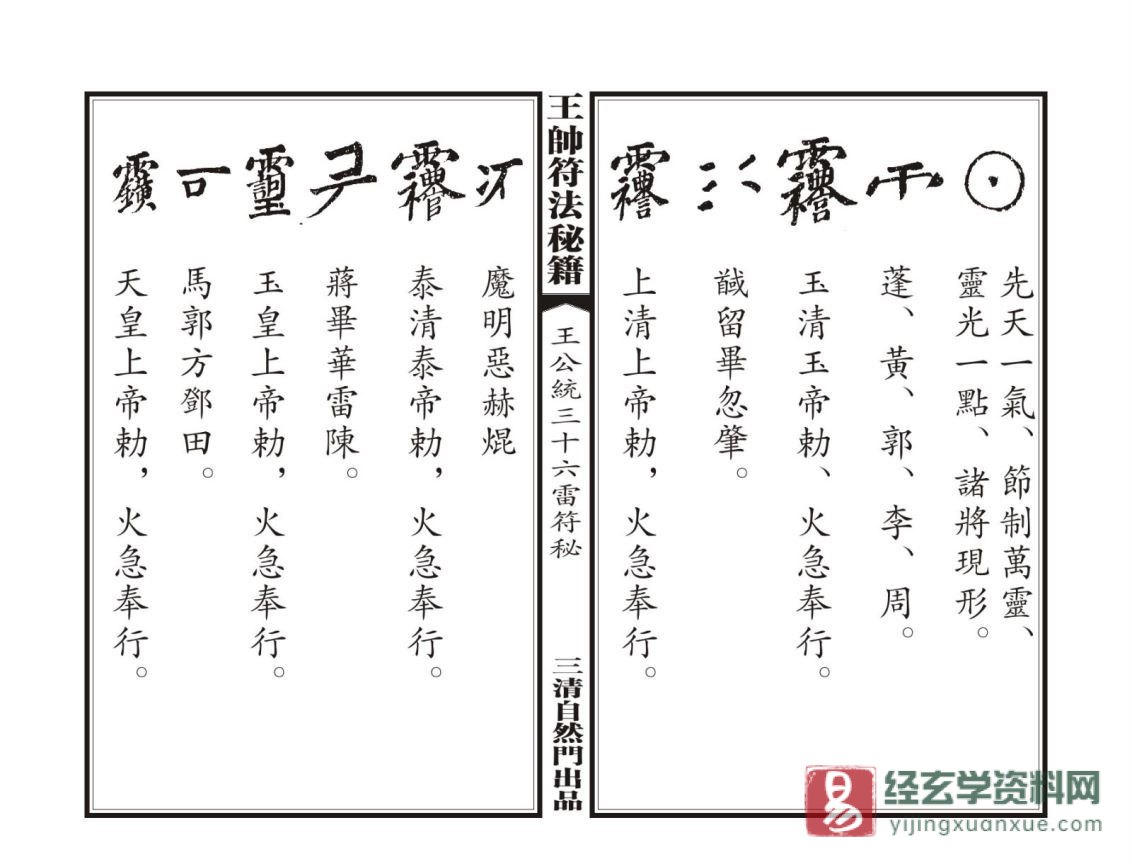 先天一氣、節制萬靈、
靈光一點、諸將現形。
蓬、黃、郭、李、周。
玉清玉帝勅、火急奉行。
馘留畢忽肇。
上清上帝勅，火急奉行。
王帥符法秘籍
王公統三十六雷符秘
三清自然門出品
魔明惡赫焜
泰清泰帝勅，火急奉行。
蔣畢華雷陳。
玉皇上帝勅，火急奉行。
馬郭方鄧田。
天皇上帝勅，火急奉行。
易
经玄学资料网
yijingxuanxue.com